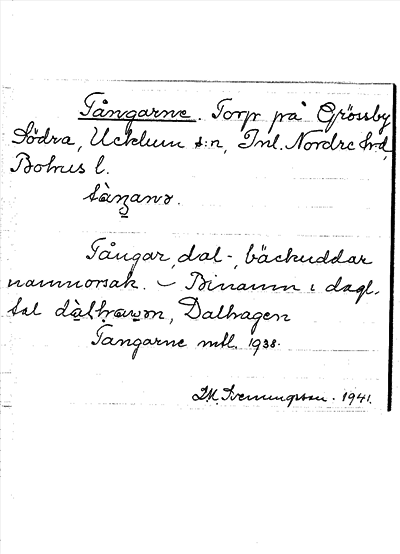 Tångarne. Torp på Grössby
Södra, Ucklum s:n, Inl. Nordre hd,
Bohus l.
tàŋana.
Tångar, dal-, bäckuddar
namnorsak. – Binamn i dagl.
tal dàlhawən, Dalhagen
Tangarne mtl. 1938.
1941.